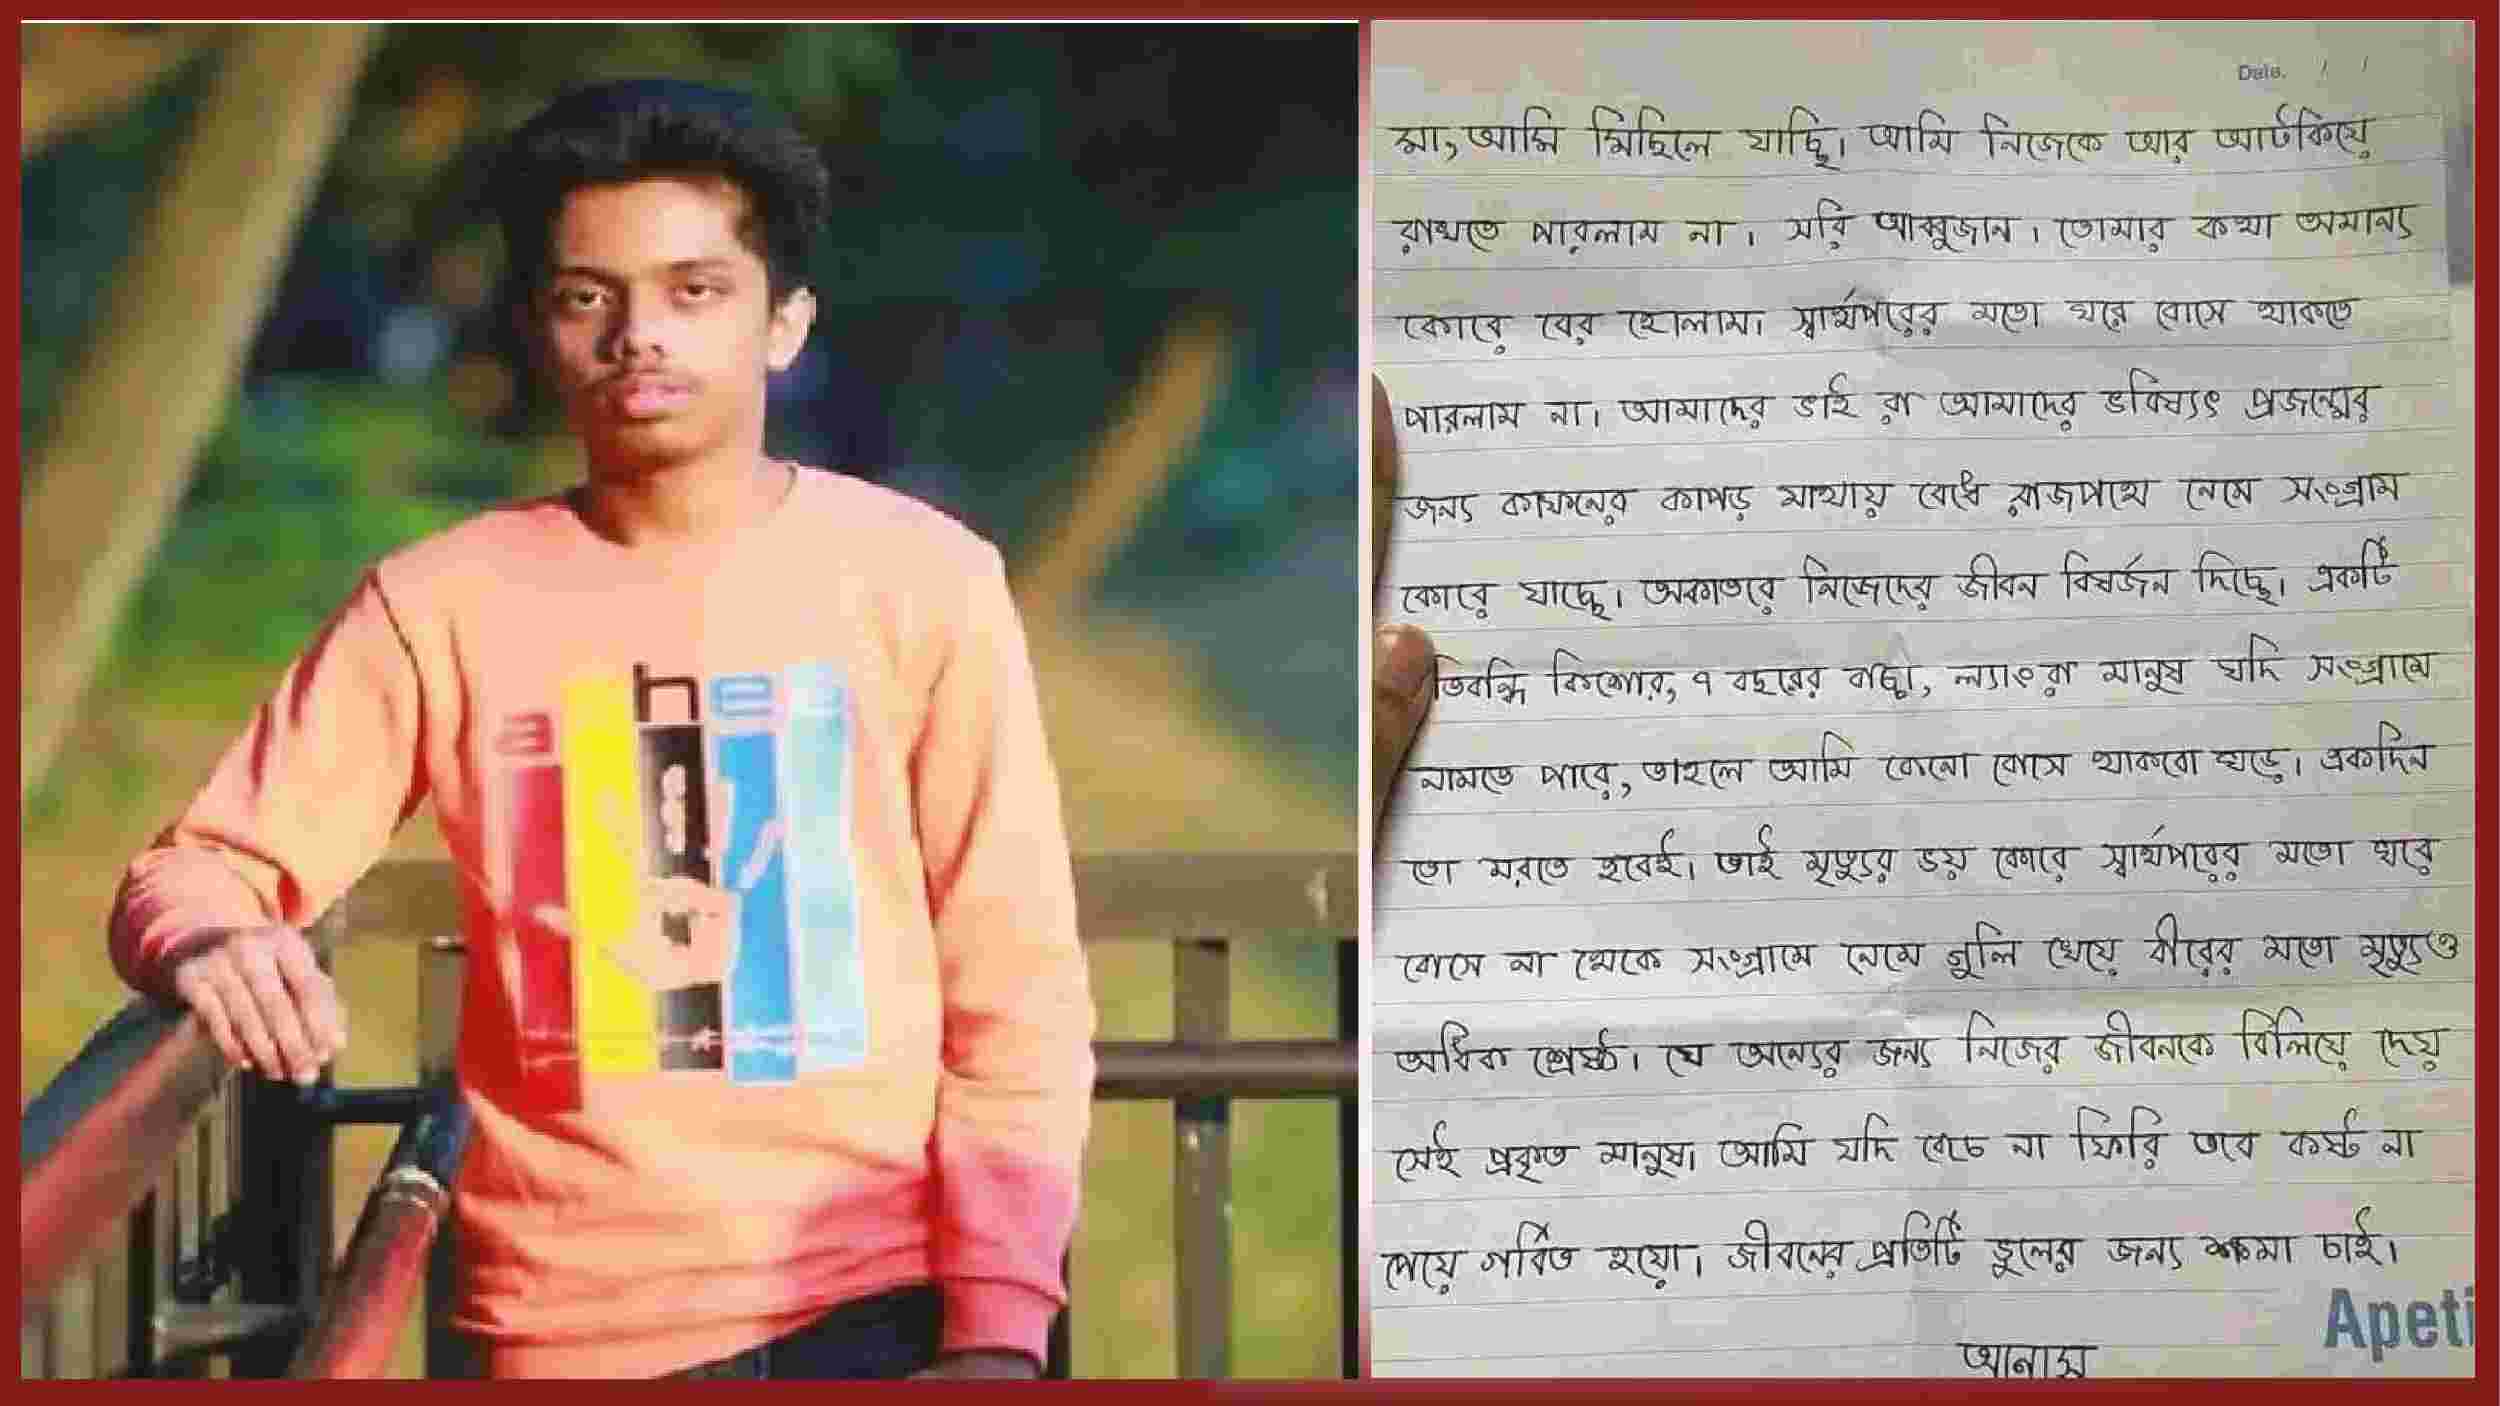 Date. / /
মা, আমি মিছিলে যাচ্ছি। আমি নিজেকে আর আটকিয়ে
রাখতে পারলাম না। সরি আব্বুজান। তোমার কথা অমান্য
কোরে বের হোলাম। স্বার্থপরের মতো ঘরে বোসে থাকতে
পারলাম না। আমাদের ভাই রা আমাদের ভবিষ্যৎ প্রজন্মের
জন্য কাফনের কাপড় মাথায় বেধে রাজপথে নেমে সংগ্রাম
কোরে যাচ্ছে। অকাতরে নিজেদের জীবন বিষর্জন দিচ্ছে। একটি
তিবন্ধি কিশোর, ৭ বছরের বাচ্চা, ল্যাংরা মানুষ যদি সংগ্রামে
নামতে পারে, তাহলে আমি কেনো বোসে থাকবো ঘড়ে। একদিন
তো মরতে হবেই। তাই মৃত্যুর ভয় কোরে স্বার্থপরের মতো ঘরে
বোসে না থেকে সংগ্রামে নেমে গুলি খেয়ে বীরের মতো মৃত্যুও
অধিক শ্রেষ্ঠ। যে অন্যের জন্য নিজের জীবনকে বিলিয়ে দেয়
সেই প্রকৃত মানুষ। আমি যদি বেচে না ফিরি তবে কষ্ট না
পেয়ে গর্বিত হয়ো। জীবনের প্রতিটি ভুলের জন্য ক্ষমা চাই।
Apeti
আনাস